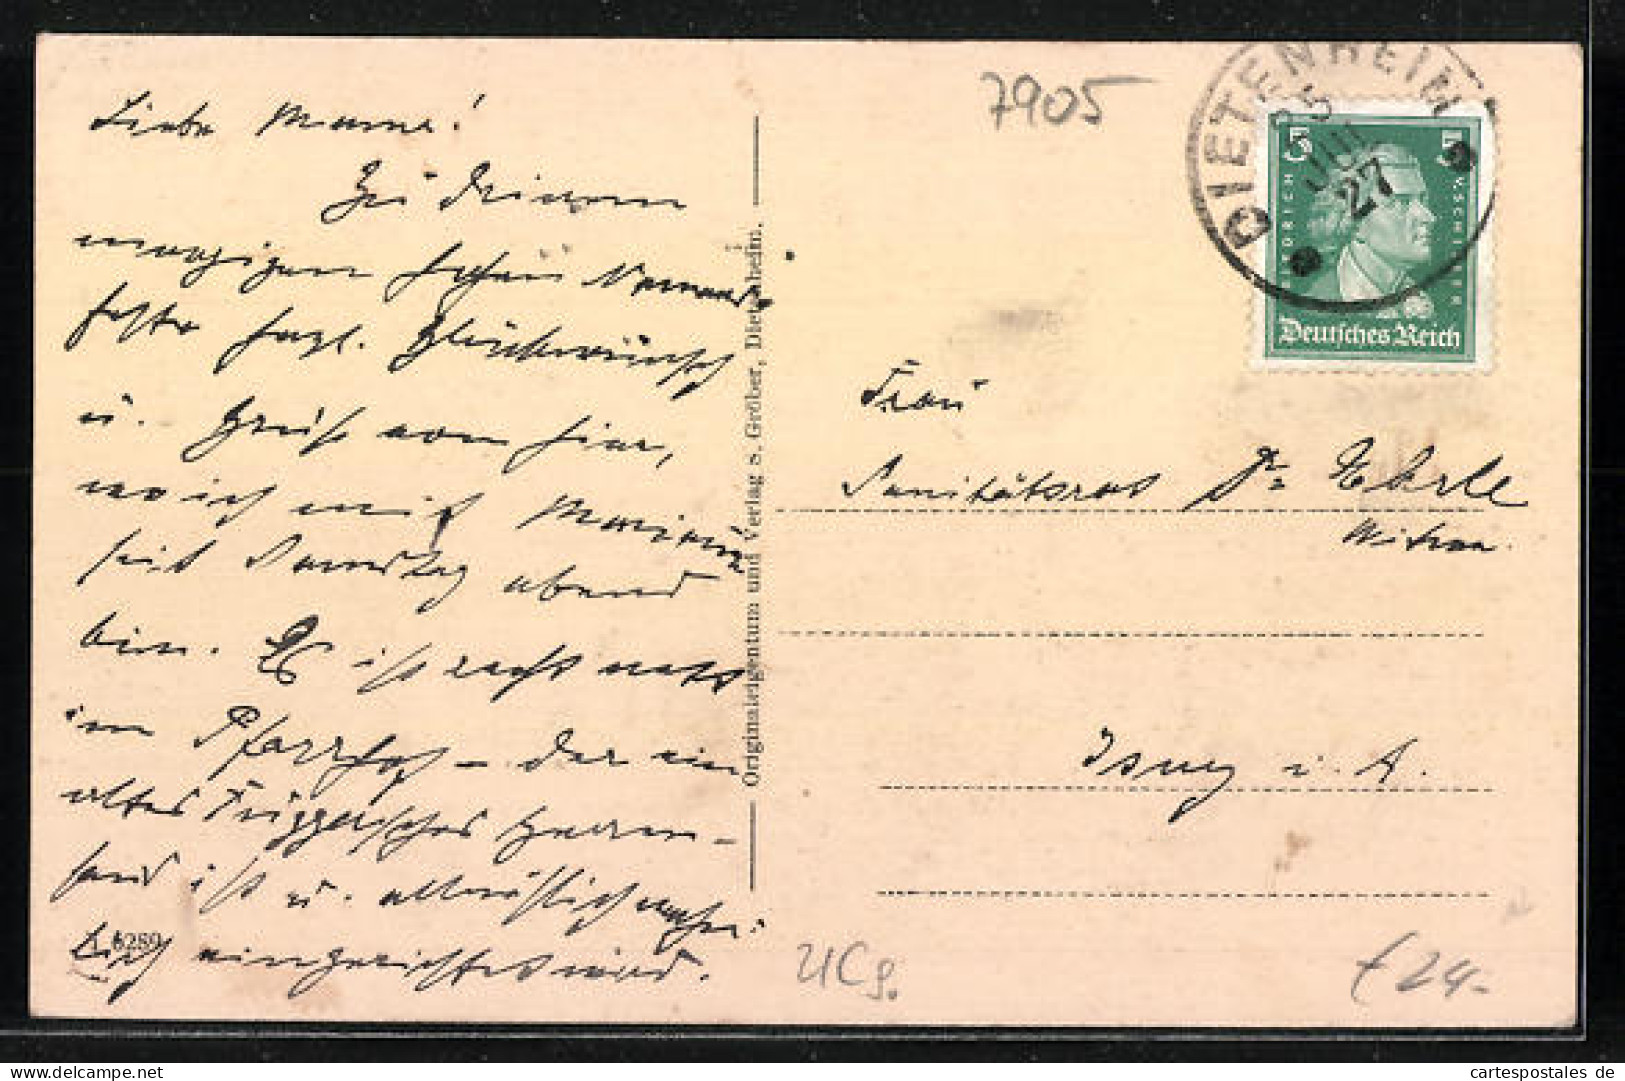 Liebe Mama!
Zu Deinem
morgigen hohen Namens-
feste herzl. Glückwunsch
u. Gruß von hier,
wo ich mit
seit Samstag abend
bin. Es ist recht nett
im Pfarrhof – der ein
altes Fuggerisches Herren-
haus ist u. allmählich
eingerichtet wird.
A 6289
Originaleigentum und Verlag v. Gröber, Dietenheim.
7905
DIETENHEIM
25 JUL 27
5
FRIEDRICH V. SCHILLER
Deutsches Reich
Frau
Sanitätsrat Dr Ehrle
Witwe.
Isny i. A.
€ 24-
cartespostales de